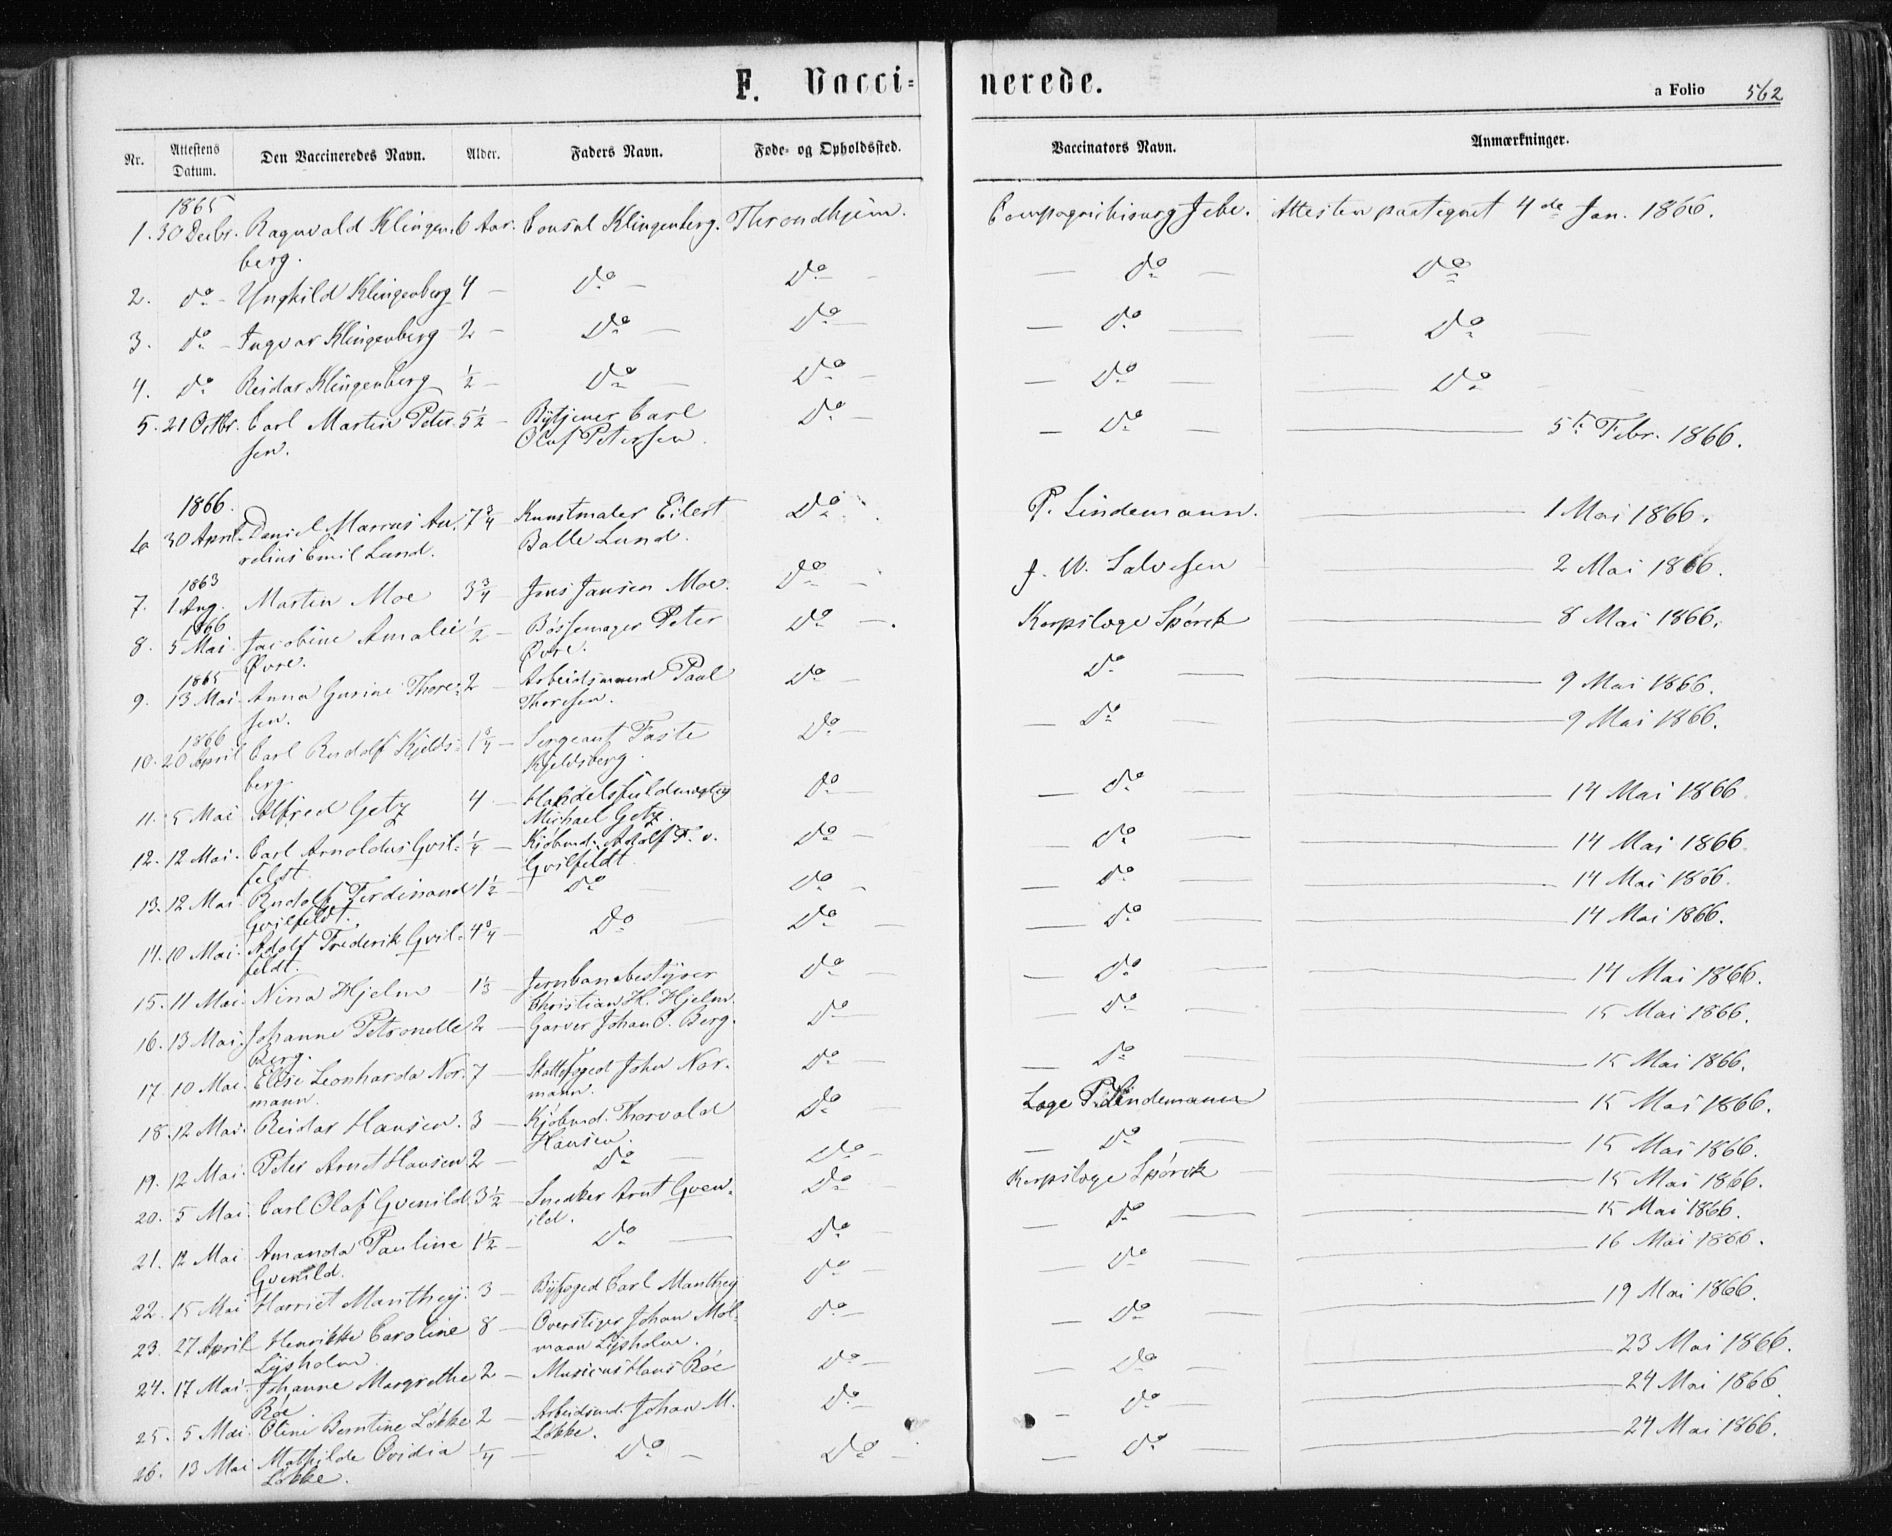 F. Vacci=
nerede.
a Folio 562
Nr. Attestens Datum. Den Vaccineredes Navn. Alder. Faders Navn. Føde- og Opholdssted. Vaccinators Navn. Anmærkninger.
1865
1. 30 Decbr. Ragnvald Klingen- 6 Aar. Consul Klingenberg. Throndhjem. Jebe. Attesten paategnet 4de Jan. 1866.
berg.
2. do - Klingenberg 4 — Do — Do — — Do — Do
3. do - Ingvar Klingenberg 2 — Do — Do — — Do — — Do —
4. do Reidar Klingenberg ½ — Do — Do — — Do — — Do —
5. 21 Octbr. Carl Martin Peter- 5½ — Bytjener Carl Do — — Do — — 5te Febr. 1866.
sen. Olaf Petersen.
1866.
6 30 April. Daniel Marcus Au- 7¾ Kunstmaler Eilert Do. P. Lindemann. — 1 Mai 1866.
relius Emil Lund. Balle Lund.
1863
7. 1 Aug. Martin Moe 3¾ — Jens Jansen Moe. Do — J. W. Salvesen — 2 Mai 1866.
1866
8. 5 Mai Jacobine Amalie ½ — Bøssemager Peter Do —. Korpslæge Spørck — 8 Mai 1866.
Øvre. Øvre.
1865
9. 13 Mai. Anna Gurine Thore- 2 — Arbeidsmand Paul Do — Do — — 9 Mai 1866.
sen. Thoresen.
1866
10. 20 April Carl Rudolf Kjelds- 1¾ — Sergeant Do — — Do — — 9 Mai 1866.
berg. Kjeldsberg.
11. 5 Mai Alfred Getz 4 — Handelsfuldmægtig do — — Do — — 14 Mai 1866
Michael Getz.
12. 12 Mai. Carl Arnoldus Qvil- ¼ — Kjøbmd. Adolf F. v. Do — — Do — — 14 Mai 1866
feldt. Qvilfeldt.
13. 12 Mai. Rudolf Ferdinand 1½ — Do — Do — — Do — — 14 Mai 1866.
Qvilfeldt.
14. 10 Mai. Adolf Frederik Qvil- 4¾ — Do — Do — — Do — — 14 Mai 1866.
feldt.
15. 11 Mai. Nina Hjelm — 1⅓ — Jernbanebestyrer Do — — Do — — 14 Mai 1866.
Christian H. Hjelm.
16. 13 Mai. Johanne Petronelle 2 — Garver Johan P. Berg. Do — — Do — — 15 Mai 1866.
Berg.
17. 10 Mai Elise Leonharda Nor- 7 — Skattefoged Johan Nor- Do — — Do — — 15 Mai 1866.
mann. mann.
18. 12 Mai. Reidar Hansen. 3 — Kjøbmd. Thorvald Do — Læge P. Lindemann — 15 Mai 1866.
Hansen.
19. 12 Mai. Peter Arnet Hansen 2 — Do — Do — — Do — — 15 Mai 1866.
20. 5 Mai. Carl Olaf Qvenild. 3½ — Snedker Arnt Qven- Do — Korpslæge Spørck — 15 Mai 1866.
ild.
21. 12 Mai Amanda Pauline 1½ — Do — Do — — Do — — 15 Mai 1866.
Qvenild.
22. 15 Mai Harriet Manthey. 3 — Byfoged Carl Manthey Do — — Do — — 16 Mai 1866.
23. 27 April Henrikke Caroline 8 — Overstiger Johan Mol- Do — — Do — — 19 Mai 1866.
Lysholm. mann Lysholm.
24. 17 Mai. Johanne Margrethe 2 — Musicus Hans Røe Do — — Do — — 23 Mai 1866.
Røe
25. 5 Mai. Oline Berntine Løkke 2 — Arbeidsmd. Johan M. Do — — Do — — 24 Mai 1866.
Løkke.
26. 13 Mai Mathilde Ovidia ¼ — Do — Do — — Do — — 24 Mai 1866.
Løkke.